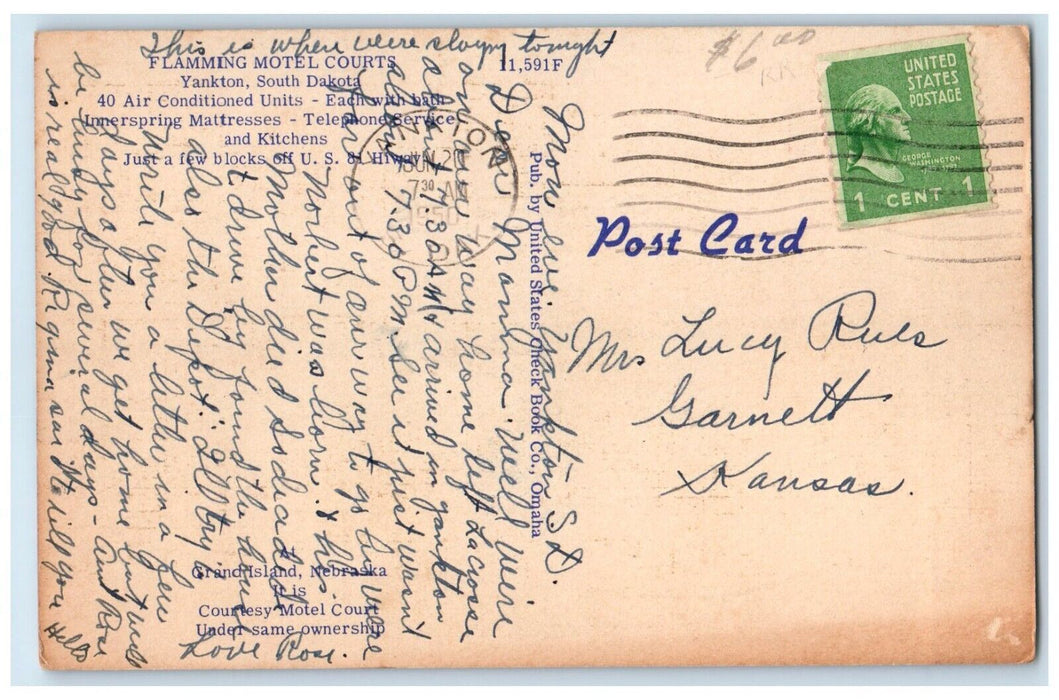 This is where were staying tonight
FLAMMING MOTEL COURTS
Yankton, South Dakota
40 Air Conditioned Units - Each with bath
Innerspring Mattresses - Telephone Service
and Kitchens
Just a few blocks off U. S. 81 Hiway
11,591F
$6.00
RR
UNITED
STATES
POSTAGE
GEORGE
WASHINGTON
1 CENT 1
YANKTON
JUN 2
7 30 AM
1950
Pub. by United States Check Book Co., Omaha
Post Card
Mrs Lucy Rues
Garnett
Kansas.
Mon. eve. Yankton S.D.
Dear Mamma: Well were
on our way home left Lacrosse
about 7:30 AM & arrived in Yankton
about 7:30 P.M. See it just wasn't
far out of our way to go by where
Norbert was born & his
Mother died so decided
t drive by found the house
also the Depot. I'll try &
write you a letter in a few
days after we get home but well
be busy for several days - Aunt Rose
is real good. Regina sure
will tell you
Hello
Love Rose.
Grand Island, Nebraska
It is
Courtesy Motel Court
Under same ownership